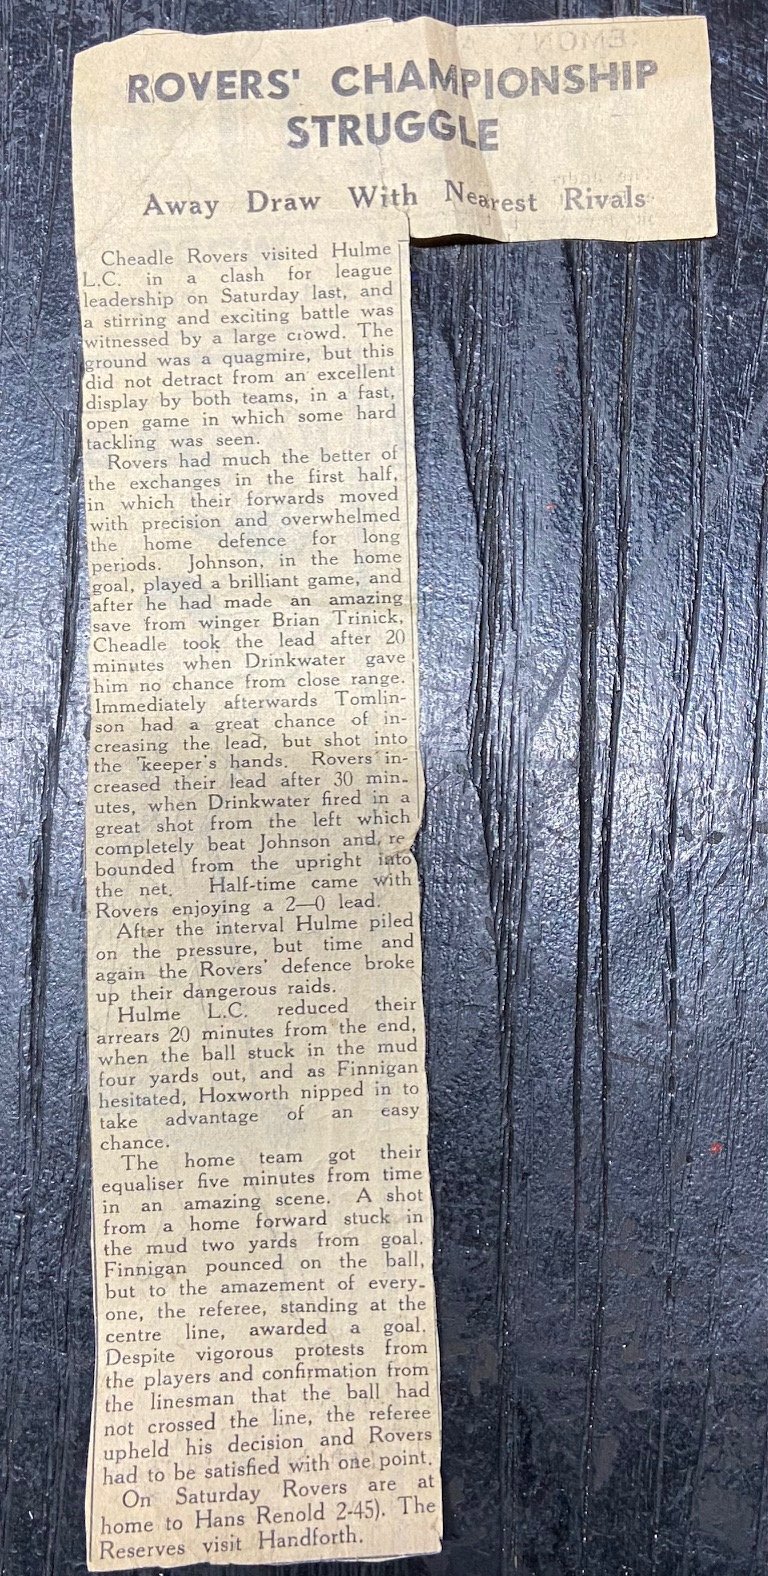 ROVERS' CHAMPIONSHIP
STRUGGLE
Away Draw With Nearest Rivals
Cheadle Rovers visited Hulme
L.C. in a clash for league
leadership on Saturday last, and
a stirring and exciting battle was
witnessed by a large crowd. The
ground was a quagmire, but this
did not detract from an excellent
display by both teams, in a fast,
open game in which some hard
tackling was seen.
Rovers had much the better of
the exchanges in the first half,
in which their forwards moved
with precision and overwhelmed
the home defence for long
periods. Johnson, in the home
goal, played a brilliant game, and
after he had made an amazing
save from winger Brian Trinick,
Cheadle took the lead after 20
minutes when Drinkwater gave
him no chance from close range.
Immediately afterwards Tomlin-
son had a great chance of in-
creasing the lead, but shot into
the 'keeper's hands. Rovers in-
creased their lead after 30 min-
utes, when Drinkwater fired in a
great shot from the left which
completely beat Johnson and re
bounded from the upright into
the net. Half-time came with
Rovers enjoying a 2—0 lead.
After the interval Hulme piled
on the pressure, but time and
again the Rovers' defence broke
up their dangerous raids.
Hulme L.C. reduced their
arrears 20 minutes from the end,
when the ball stuck in the mud
four yards out, and as Finnigan
hesitated, Hoxworth nipped in to
take advantage of an easy
chance.
The home team got their
equaliser five minutes from time
in an amazing scene. A shot
from a home forward stuck in
the mud two yards from goal.
Finnigan pounced on the ball,
but to the amazement of every-
one, the referee, standing at the
centre line, awarded a goal.
Despite vigorous protests from
the players and confirmation from
the linesman that the ball had
not crossed the line, the referee
upheld his decision and Rovers
had to be satisfied with one point.
On Saturday Rovers are at
home to Hans Renold 2-45). The
Reserves visit Handforth.